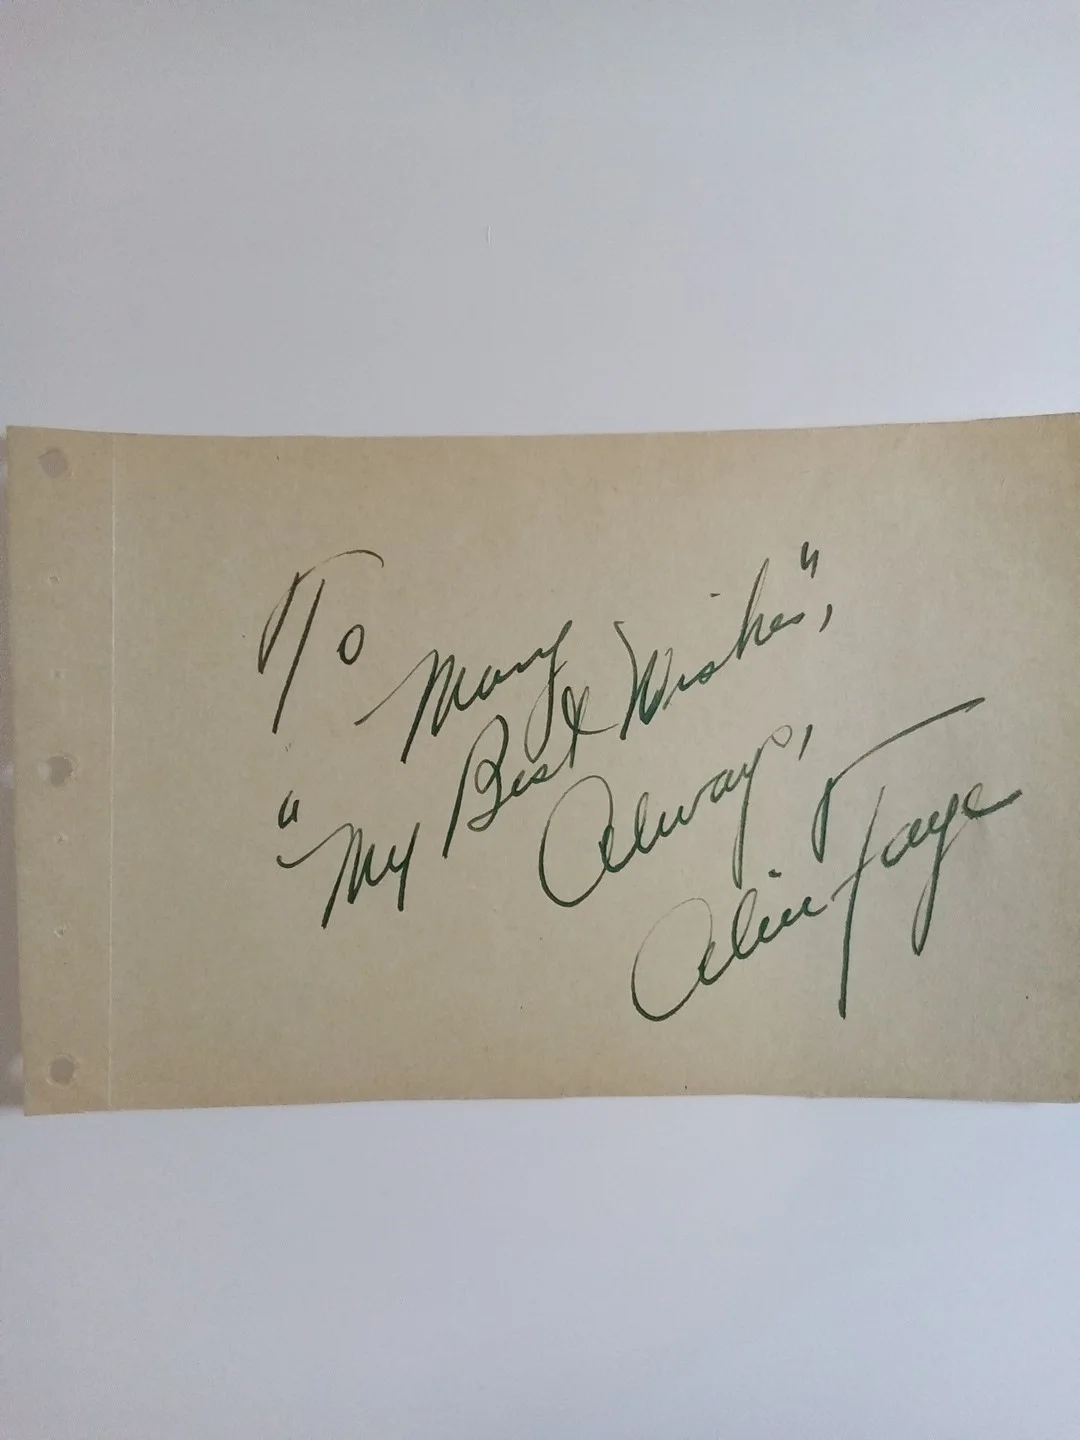 To Mary
"My Best Wishes",
Always,
Alice Faye